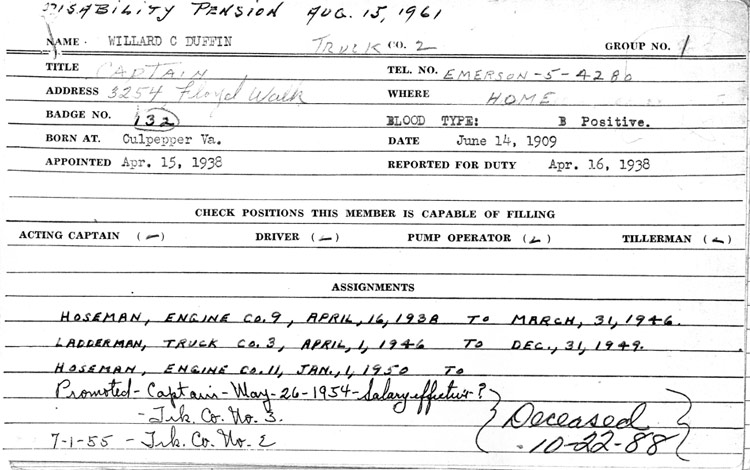 DISABILITY PENSION AUG. 15, 1961
NAME - WILLARD C DUFFIN TRUCK CO. 2 GROUP NO. 1
TITLE CAPTAIN TEL. NO. EMERSON-5-4286
ADDRESS 3254 Floyd Walk WHERE HOME
BADGE NO. 132 BLOOD TYPE: B Positive.
BORN AT. Culpepper Va. DATE June 14, 1909
APPOINTED Apr. 15, 1938 REPORTED FOR DUTY Apr. 16, 1938
CHECK POSITIONS THIS MEMBER IS CAPABLE OF FILLING
ACTING CAPTAIN ( ) DRIVER ( ) PUMP OPERATOR ( ) TILLERMAN ( )
ASSIGNMENTS
HOSEMAN, ENGINE CO. 9, APRIL, 16, 1938 TO MARCH, 31, 1946.
LADDERMAN, TRUCK CO. 3, APRIL, 1, 1946 TO DEC., 31, 1949.
HOSEMAN, ENGINE CO. 11, JAN., 1, 1950 TO
Promoted - Captain - May - 26 - 1954 - Salary effective - ?
- Trk. Co. No. 3.
7-1-55 - Trk. Co. No. 2
Deceased
10-22-88